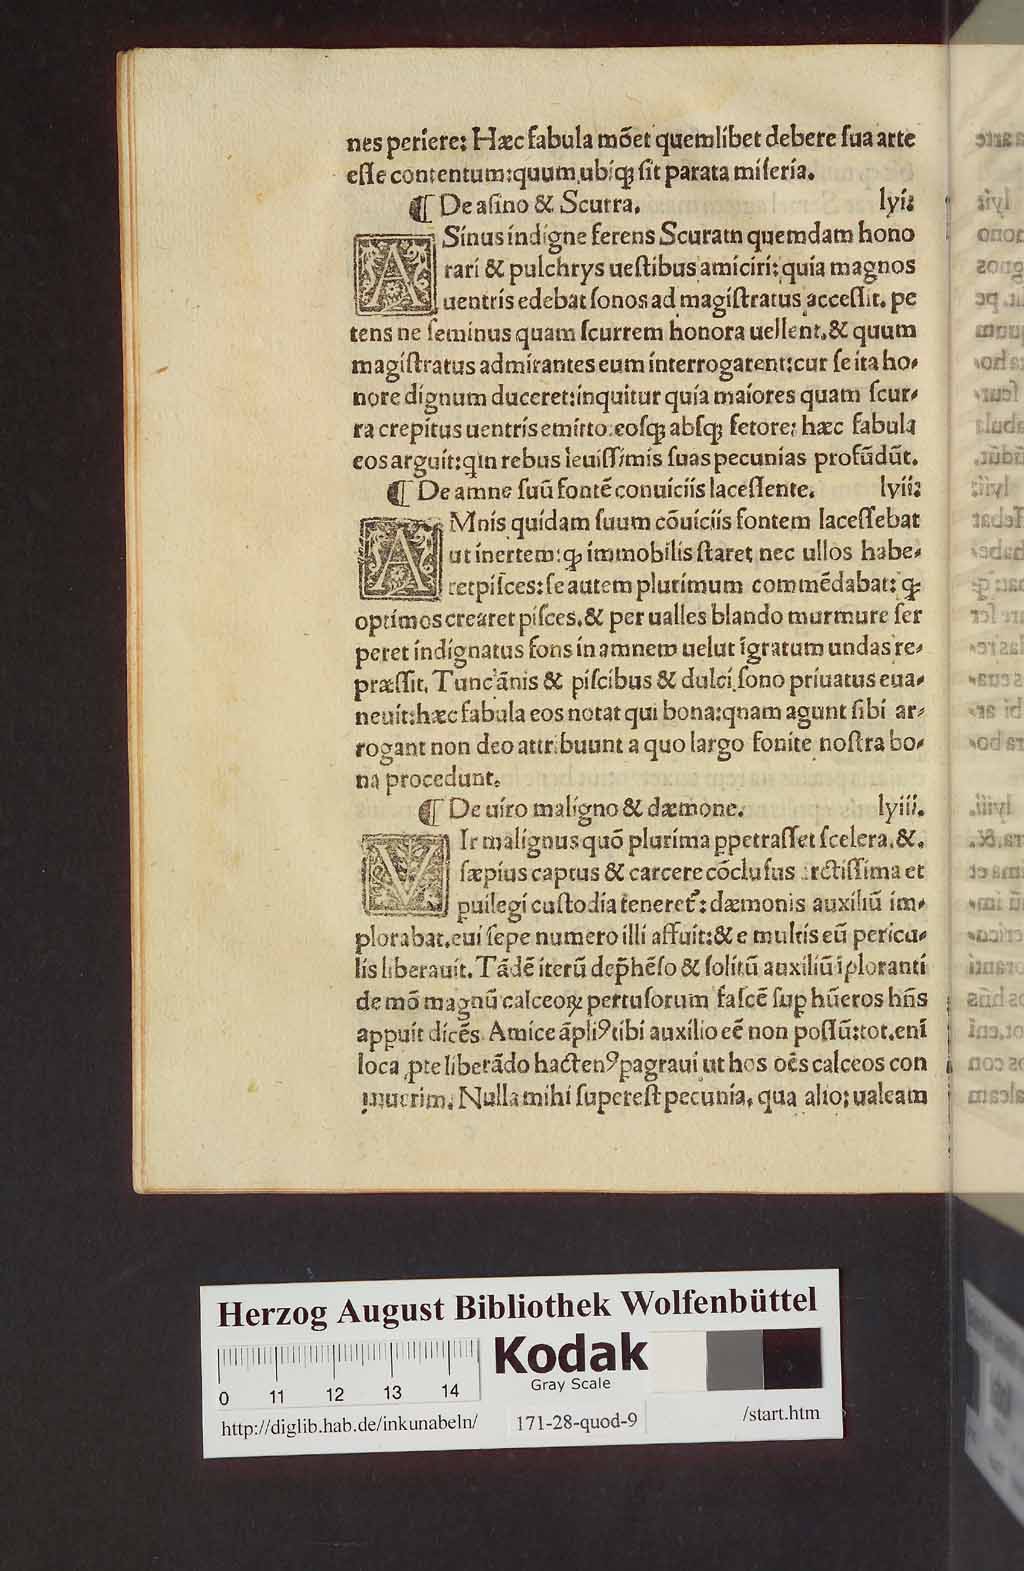 nes periere: Hæc fabula mōet quemlibet debere sua arte
esse contentum:quum ubiqꝫ sit parata miseria.
¶ De asino & Scurra. lyi:
ASinus indigne ferens Scuram quemdam hono
rari & pulchrys uestibus amiciri: quia magnos
uentris edebat sonos ad magistratus accessit. pe
tens ne seminus quam scurrem honora uellent.& quum
magistratus admirantes eum interrogarent:cur se ita ho-
nore dignum duceret:inquitur quia maiores quam scur-
ra crepitus uentris emitto.eosqꝫ absqꝫ fetore: hæc fabula
eos arguit:qin rebus leuissimis suas pecunias profūdūt.
¶ De amne suū fontē conuiciis lacessente. lyii:
AMnis quidam suum cōuiciis fontem lacessebat
ut inertem:ꝙ immobilis staret nec ullos habe-
ret pisces:se autem plurimum commēdabat: ꝙ
optimos crearet pisces.& per ualles blando murmure ser
peret indignatus fons in amnem uelut īgratum undas re-
præssit. Tunc ānis & piscibus & dulci sono priuatus eua-
neuit:hæc fabula eos notat qui bona:qnam agunt sibi ar-
rogant non deo attribuunt a quo largo fonite nostra bo-
na procedunt.
¶ De uiro maligno & dæmone. lyiii.
VIr malignus quō plurima ꝑpetrasset scelera.&.
sæpius captus & carcere cōclusus arctissima et
puilegi custodia teneret: dæmonis auxiliū im-
plorabat.eui sepe numero illi affuit:& e multis eū pericu-
lis liberauit. Tādē iterū dep̄hēso & solitū auxiliū īploranti
de mō magnū calceoꝝ pertusorum fascē sup hūeros hn̄s
appuit dicēs Amice āpliꝰ tibi auxilio eē non possū:tot.enī
loca ꝓte liberādo hactenꝰ pagraui ut hos oēs calceos con
Nulla mihi superest pecunia. qua alio; ualeam
Herzog August Bibliothek Wolfenbüttel
0 11 12 13 14
Kodak
Gray Scale
http://diglib.hab.de/inkunabeln/ 171-28-quod-9 /start.htm